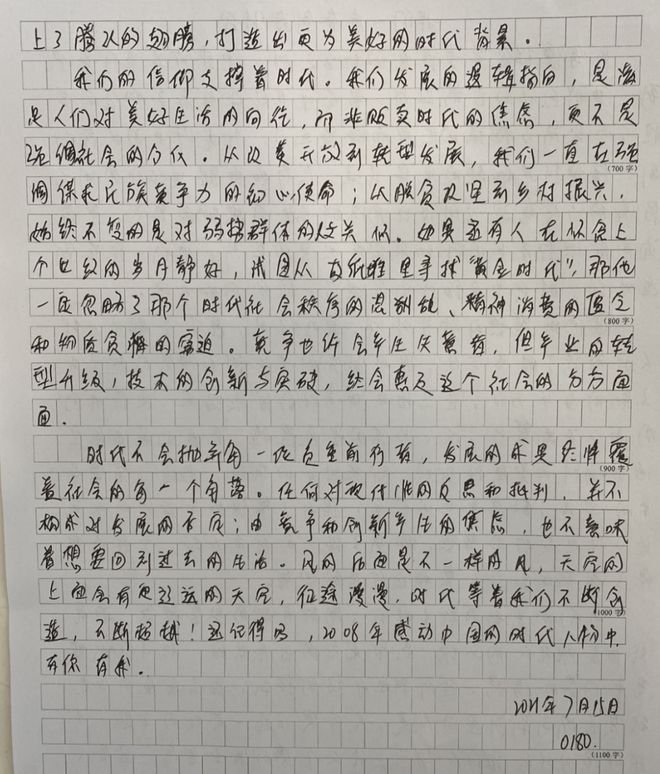 上了腾飞的翅膀，打造出更为美好的时代背景。
我们的信仰支撑着时代。我们发展的逻辑指向，是源
是人们对美好生活的向往，而非贩卖时代的焦虑，更不是
强调社会的分化。从改革开放到转型发展，我们一直在强
(700字)
调谋求民族竞争力的初心使命；从脱贫攻坚到乡村振兴，
始终不变的是对弱势群体的关怀。如果还有人在怀念上
个世纪的岁月静好，试图从故纸堆里寻找“黄金时代”，那他
一定忽略了那个时代社会秩序的混乱、精神消费的匮乏
(800字)
和物质贫瘠的窘迫。竞争也许会产生失意者，但产业的转
型升级，技术的创新与突破，终会惠及这个社会的方方面
面。
时代不会抛弃每一位负重前行者，发展的成果终将覆
(900字)
盖社会的每一个角落。任何对现代性的反思和批判，并不
构成对发展的否定；由竞争和创新产生的焦虑，也不意味
着想要回到过去的生活。风的后面是不一样的风，天空的
上面会有更辽远的天空，征途漫漫，时代等着我们不断创
(1000字)
造，不断超越！还记得吗，2008年感动中国的时代人物中，
有你有我。
2021年7月15日
0180.
(1100字)